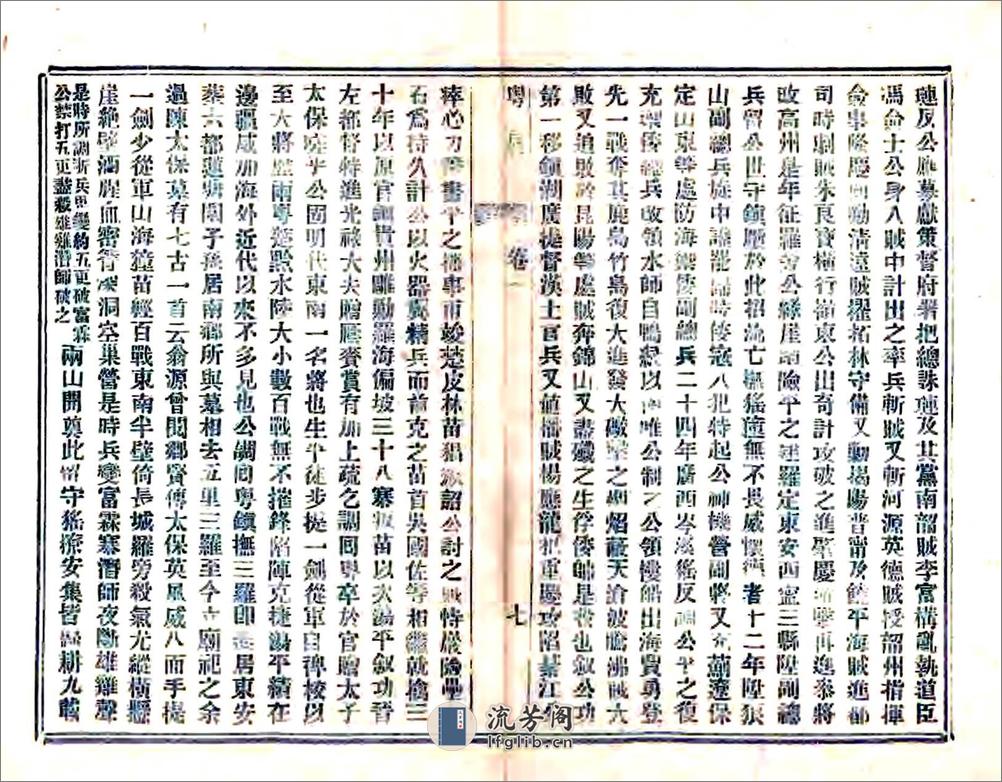 璉反公應募獻策督府署把總誅璉及其黨南韶賊李富構亂執道臣
馮僉士公身入賊中計出之率兵斬賊又斬河源英德賊授韶州指揮
僉事隆慶間勦清遠賊擢柘林守備又勦揭陽普甯及饒平海賊進都
司時劇賊朱良寶橫行嶺東公出奇計攻破之進肇慶 再進參將
改高州是年征羅旁公緣崖 險平之建羅定東安西寧三縣陞副總
兵留公世守鎮壓於此招流亡撫猺 無不畏威懷 者十二年陞狼
山副總兵旋中 罷歸時倭寇入犯特起公神機營副將又充薊遼保
定山東等處防海禦倭副總兵二十四年廣西岑溪猺反調公平之復
充 倭總兵改領水師自鴨綠以南唯公制之公領樓船出海賈勇登
先一戰奪其鹿島竹島復大進發大礮擊之烟焰蔽天滄波騰沸賊大
敗又追敗於昆陽等處賊奔錦山又盡殲之生俘倭帥是 也敘公功
第一移鎮湖廣提督漢土官兵又值播賊楊應龍犯重慶攻陷綦江
粵 卷一 七
瘁心力 畫平之播事甫竣楚皮林苗猖 詔公討之賊恃巖險壘
石為持久計公以火器 精兵而首克之苗首吳國佐等相繼就擒三
十年以原官鎮貴州雕勦羅海偏坡三十八寨叛苗以次蕩平敘功晉
左都督特進光祿大夫贈廕賚賞有加上疏乞調回粵卒於官贈太子
太保嗟乎公固明代東南一名將也生平徒步提一劍從軍自裨校以
至大將歷兩粵楚黔水陸大小數百戰無不摧鋒陷陣克捷蕩平績在
邊疆威加海外近代以來不多見也公調回粵鎮撫三羅卽 居東安
葬六都蓮 閒子孫居南鄉所與墓相去五里三羅至今立廟祀之余
過陳太保墓有七古一首云翁源曾聞鄉賢傳太保英風威八面手提
一劍少從軍山海猺苗經百戰東南半壁倚長城羅旁殺氣尤縱橫懸
崖絕壁洒腥血密箐 洞空巢營是時兵變富霖寨潛師夜斷雄雞聲
是時所調浙兵 變約五更破富霖
公禁打五更盡殺雄雞潛師破之
兩山開奠此留守猺獠安集皆 耕九載
流芳阁
lfglib.cn